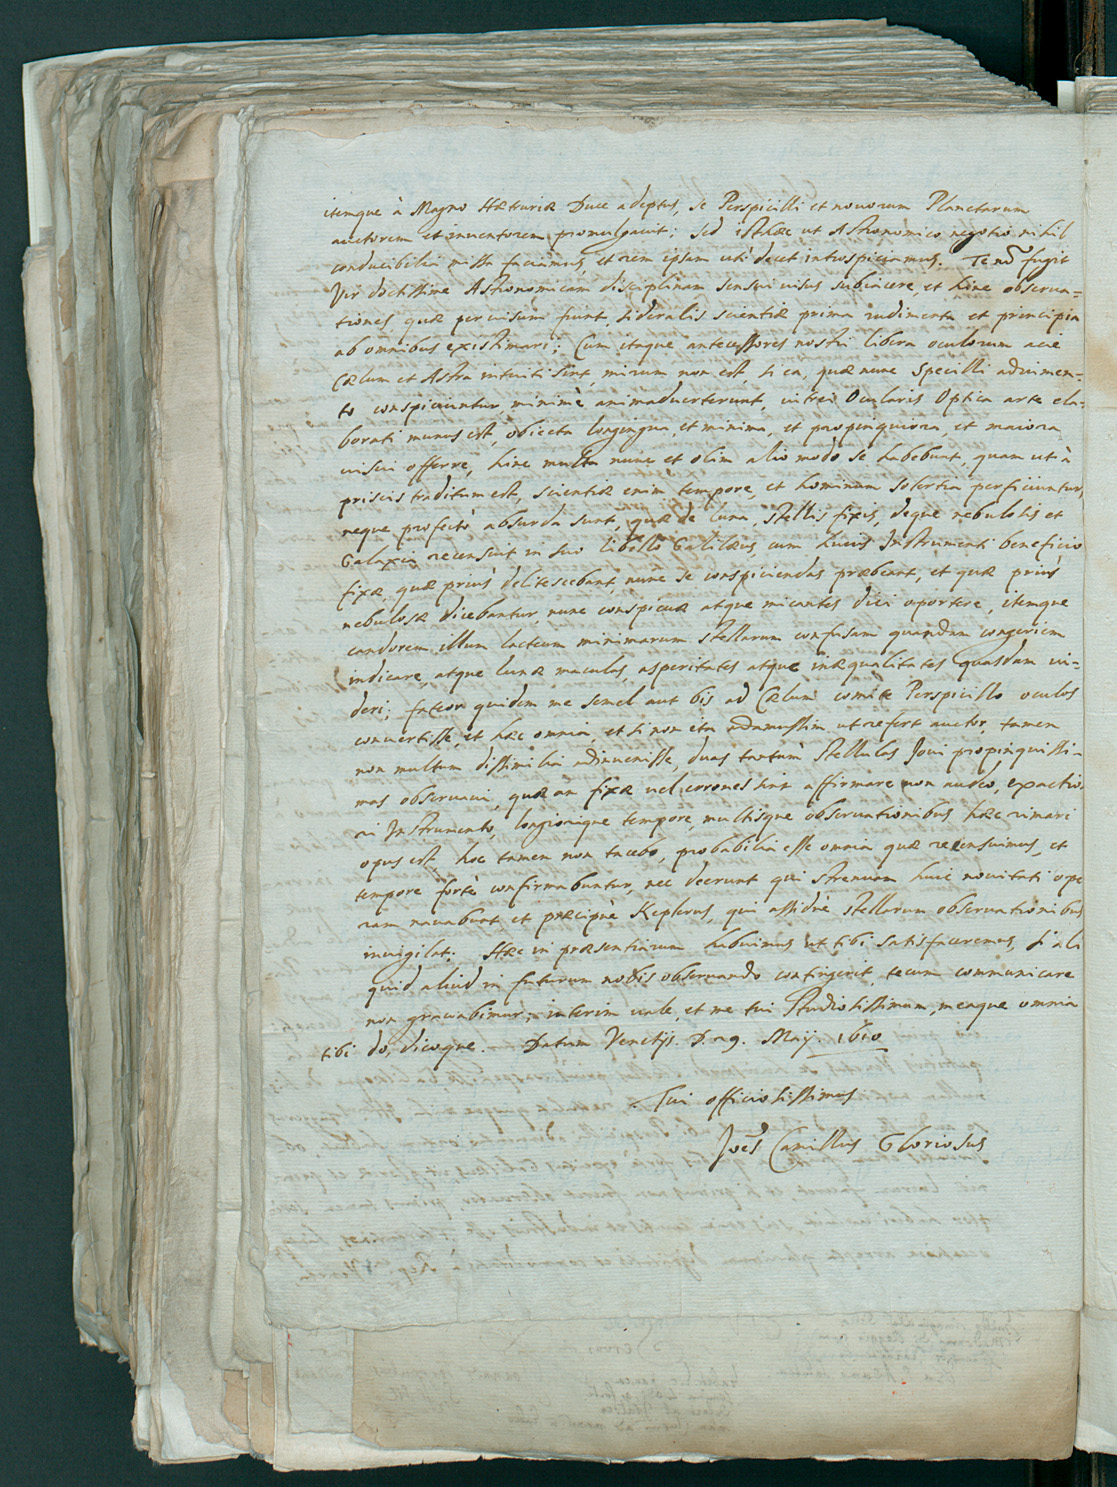 itemque à Magno Hæturiæ Duce adeptus, se Perspicilli et nouorum Planetarum
auctorem et inuentorem promulgauit; sed isthæc ut Astronomico negotio nihil
conducibilia missa faciamus, et rem ipsam uti decet introspiciamus. Te nõ fugit
Vir doctissime Astronomicam disciplinam sensui uisus subiacere, et hinc obserua=
tiones quæ per uisum fiunt, sideralis scientiæ prima rudimenta et principia
ab omnibus existimari; Cum itaque antecessores nostri libera oculorum acie
Cælum et Astra intuiti sint, mirum non est, si ea, quæ nunc specilli adiumen=
to conspiciuntur, minimè animaduerterunt, uitrei Ocularis Optica arte ela=
borati munus est, obiecta longinqua, et minima, et propinquiora, et maiora
uisui offerre, hinc multa nunc et olim alio modo se habebunt, quam uti à
priscis traditum est, scientiæ enim tempore, et hominum solertia perficiuntur,
neque profectò absurda sunt, quæ de luna, stellis fixis, deque nebulosis et
Galaxia recensuit in suo libello Galilæus, cum huius Instrumenti beneficio
fixæ, quæ priùs delitescebant, nunc se conspiciendas præbeant, et quæ priùs
nebulosæ dicebantur, nunc conspicuæ atque micantes dici oportere, itemque
candorem illum lacteum minimarum stellarum confusam quandam congeriem
indicare, atque lunæ maculas, asperitates atque inæqualitates quasdam ui=
deri; fateor quidem me semel aut bis ad Cælum comite Perspicillo oculos
conuertisse, et hæc omnia, et si non ita adamussim ut refert auctor, tamen
non multum dissimilia adinuenisse, duas tantùm stellulas Ioui propinquissi=
mas obseruaui, quæ an fixæ uel errones sint affirmare non audeo, exactio
ri Instrumento, longiorique tempore, multisque obseruationibus hæc rimari
opus est, hoc tamen non tacebo, probabilia esse omnia quæ recensuimus, et
tempore fortè confirmabuntur, nec deerunt qui strenuam huic nouitati ope
ram nauabunt et præcipuè Keplerus, qui assiduè stellarum obseruationibus
inuigilat. Hæc in præsentiarum habuimus ut tibi satisfaceremus, si ali
quid aliud in futurum nobis obseruando contigerit, tecum communicare
non grauabimur; interim uale, et me tui studiosissimum, meaque omnia
tibi do, dicoque. Datum Venetijs. D. 29. Maij. 1610
Tui officiosissimus
Joẽs Camillus Gloriosus